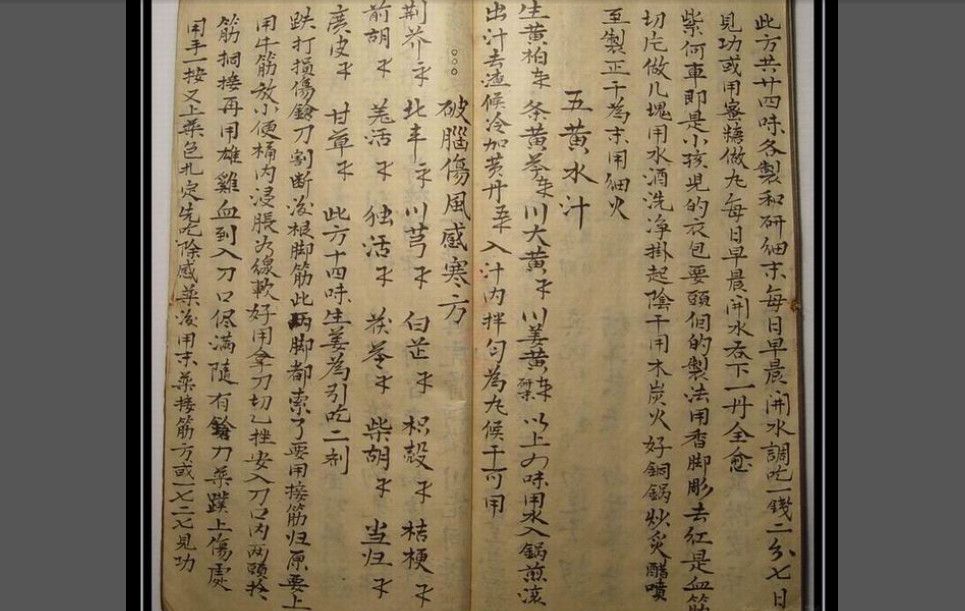 此方共廿四味各製和研細末每日早晨開水調吃一錢二分七日
見功或用蜜糖做丸每日早晨開水吞下一丹全愈
紫何車即是小孩児的衣包要頭個的製法用香脚彫去紅是血筋
切片做几塊用水酒洗净掛起陰干用木炭火好銅鍋炒炙醋噴
至製正干為末用細火
五黄水汁
生黄柏 条黄芩 川大黄 川姜黄 以上四味用水入锅煎滚
出汁去渣候冷加黄丹 入汁内拌匀為丸候干可用
破腦傷風感寒方
荆芥 北丰 川芎 白芷 枳殼 桔梗
前胡 羌活 独活 茯苓 柴胡 当归
廣皮 甘草 此方十四味生姜為引吃二剂
跌打損傷鎗刀割断後根脚筋此两脚都索了要用接筋归原要上
用牛筋放小便桶内浸脹為線軟好用拿刀切乙挫安入刀口内两頭
筋捅接再用雄雞血到入刀口侭满隨有鎗刀藥蹼上傷處
用手一接又上藥色扎定先吃除感藥後用末藥接筋方或一七二七見功